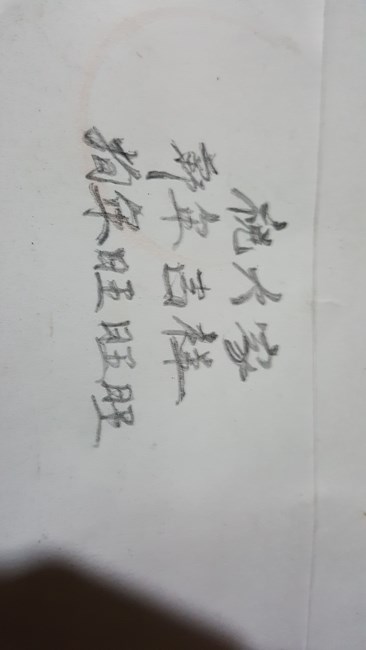 祝大家
新年吉祥
狗年旺旺旺